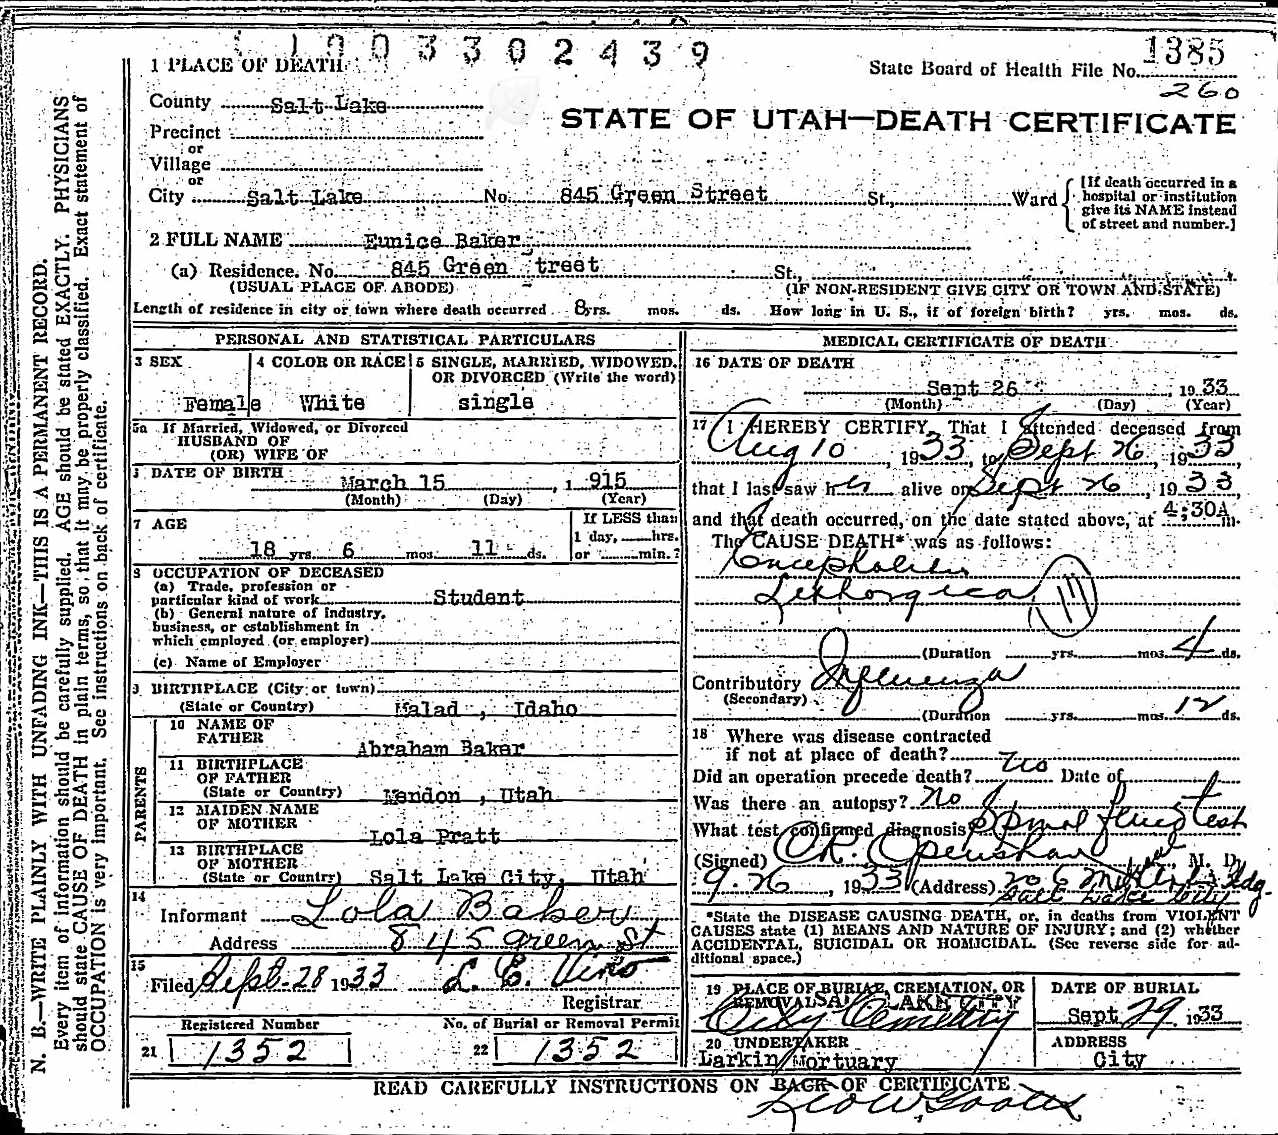 1003302439
1385
1 PLACE OF DEATH
State Board of Health File No.
260
County Salt Lake
STATE OF UTAH—DEATH CERTIFICATE
Precinct
or
Village
or
City Salt Lake No. 845 Green Street St., Ward
[If death occurred in a
hospital or institution
give its NAME instead
of street and number.]
2 FULL NAME Eunice Baker
(a) Residence. No. 845 Green treet St.,
(USUAL PLACE OF ABODE) (IF NON-RESIDENT GIVE CITY OR TOWN AND STATE)
Length of residence in city or town where death occurred 8 yrs. mos. ds. How long in U. S., if of foreign birth? yrs. mos. ds.
PERSONAL AND STATISTICAL PARTICULARS
3 SEX 4 COLOR OR RACE 5 SINGLE, MARRIED, WIDOWED,
OR DIVORCED (Write the word)
Female White single
5a If Married, Widowed, or Divorced
HUSBAND OF
(OR) WIFE OF
DATE OF BIRTH
March 15, 1 915
(Month) (Day) (Year)
7 AGE If LESS than
1 day, hrs.
18 yrs. 6 mos. 11 ds. or min.?
8 OCCUPATION OF DECEASED
(a) Trade, profession or
particular kind of work Student
(b) General nature of Industry,
business, or establishment in
which employed (or employer)
(c) Name of Employer
BIRTHPLACE (City or town)
(State or Country) Malad, Idaho
PARENTS
10 NAME OF
FATHER Abraham Baker
11 BIRTHPLACE
OF FATHER
(State or Country) Mendon, Utah
12 MAIDEN NAME
OF MOTHER Lola Pratt
13 BIRTHPLACE
OF MOTHER
(State or Country) Salt Lake City, Utah
14
Informant Lola Baker
Address 845 green St
15
Filed Sept. 28 1933 L. E. Viro
Registrar
Registered Number No. of Burial or Removal Permit
21 1352 22 1352
MEDICAL CERTIFICATE OF DEATH
16 DATE OF DEATH
Sept 26, 1933
(Month) (Day) (Year)
17 I HEREBY CERTIFY, That I attended deceased from
Aug 10, 1933, to Sept 26, 1933,
that I last saw her alive on Sept 26, 1933,
and that death occurred, on the date stated above, at 4;30A m.
The CAUSE DEATH* was as follows:
Encephalitis
Lethargica
(Duration yrs. mos. 4 ds.
Contributory Influenza
(Secondary)
(Duration yrs. mos. 12 ds.
18 Where was disease contracted
if not at place of death?
Did an operation precede death? No Date of
Was there an autopsy? No
What test confirmed diagnosis? Spinal fluid test
(Signed) CR Openshaw, M. D.
9-26, 1933 (Address) 206 Bldg.
Salt Lake City
*State the DISEASE CAUSING DEATH, or, in deaths from VIOLENT
CAUSES state (1) MEANS AND NATURE OF INJURY; and (2) whether
ACCIDENTAL, SUICIDAL OR HOMICIDAL. (See reverse side for ad-
ditional space.)
19 PLACE OF BURIAL, CREMATION, OR
REMOVAL SALT LAKE CITY
City Cemetery
DATE OF BURIAL
Sept 29 1933
20 UNDERTAKER
Larkin Mortuary
ADDRESS
City
READ CAREFULLY INSTRUCTIONS ON BACK OF CERTIFICATE
N. B.—WRITE PLAINLY WITH UNFADING INK—THIS IS A PERMANENT RECORD.
Every item of information should be carefully supplied. AGE should be stated EXACTLY. PHYSICIANS
should state CAUSE OF DEATH in plain terms, so that it may be properly classified. Exact statement of
OCCUPATION is very important. See instructions on back of certificate.